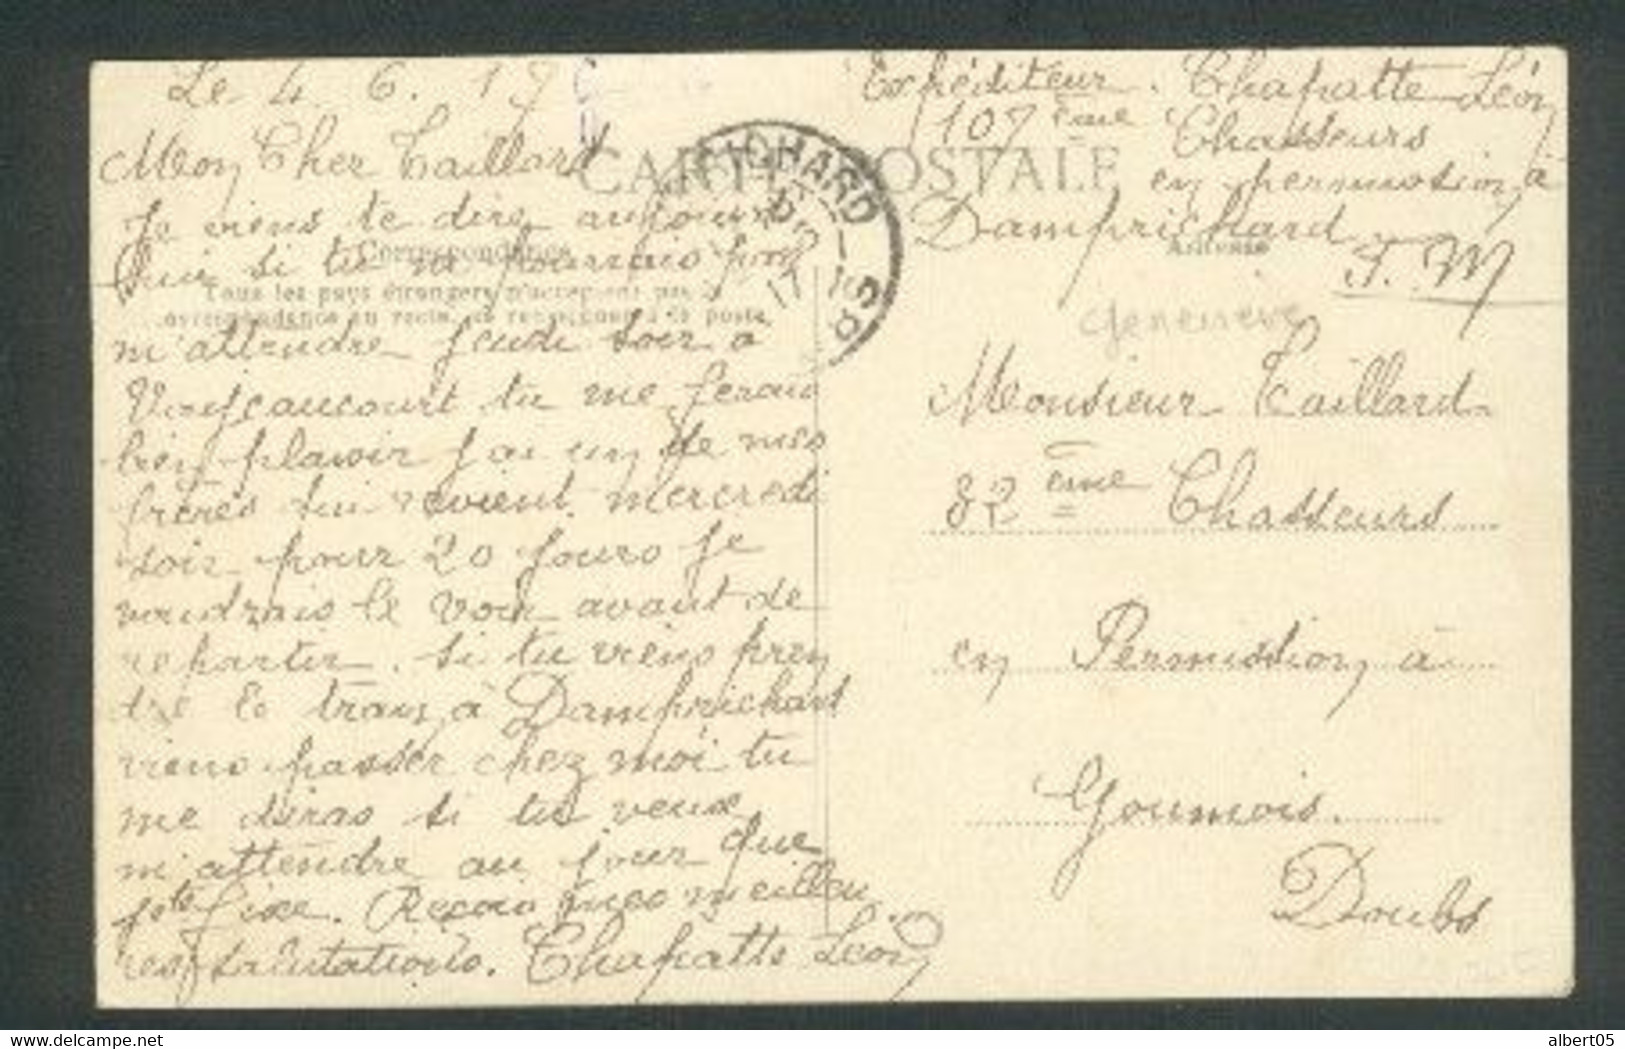 Le 4. 6. 17
Mon Cher Taillard
Je viens te dire aujourd
hui si tu ne pourrais pas
m'attendre jeudi soir à
tu me ferais
bien plaisir j'ai un de mes
frères qui revient mercredi
soir pour 20 jours je
voudrais le voir avant de
repartir. Si tu viens pren
dre le train à Damprichard
viens passer chez moi tu
me diras si tu veux
m'attendre au jour que
je te fixe. Reçois mes meilleu
res salutations. Chapatte Léon
CARTE POSTALE
Correspondance
Tous les pays étrangers n'acceptent pas la
correspondance au recto, se renseigner à la poste
RICHARD
17
Expéditeur. Chapatte Léon
107 ème Chasseurs
en permission à
Damprichard
Adresse
F. M
Genevieve
Monsieur Taillard
82 ème Chasseurs
en Permission à
Goumois.
Doubs
albert05